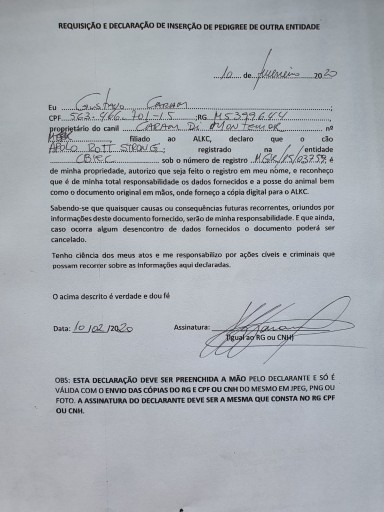 REQUISIÇÃO E DECLARAÇÃO DE INSERÇÃO DE PEDIGREE DE OUTRA ENTIDADE
10 de fevereiro 2020
Eu Gustavo Caram
CPF ;RG
proprietário do canil CARAM DI MONTEMOR nº
, filiado ao ALKC, declaro que o cão
APOLO ROTT STRONG, registrado na entidade
CBIEC sob o número de registro MGR/15/03759, é
de minha propriedade, autorizo que seja feito o registro em meu nome, e reconheço
que é de minha total responsabilidade os dados fornecidos e a posse do animal bem
como o documento original em mãos, onde forneço a cópia digital para o ALKC.
Sabendo-se que quaisquer causas ou consequências futuras recorrentes, oriundos por
informações deste documento fornecido, serão de minha responsabilidade. E que ainda,
caso ocorra algum desencontro de dados fornecidos o documento poderá ser
cancelado.
Tenho ciência dos meus atos e me responsabilizo por ações cíveis e criminais que
possam recorrer sobre as informações aqui declaradas.
O acima descrito é verdade e dou fé
Data: 10/02/2020 Assinatura:
(Igual ao RG ou CNH)
OBS: ESTA DECLARAÇÃO DEVE SER PREENCHIDA A MÃO PELO DECLARANTE E SÓ É
VÁLIDA COM O ENVIO DAS CÓPIAS DO RG E CPF OU CNH DO MESMO EM JPEG, PNG OU
FOTO. A ASSINATURA DO DECLARANTE DEVE SER A MESMA QUE CONSTA NO RG CPF
OU CNH.